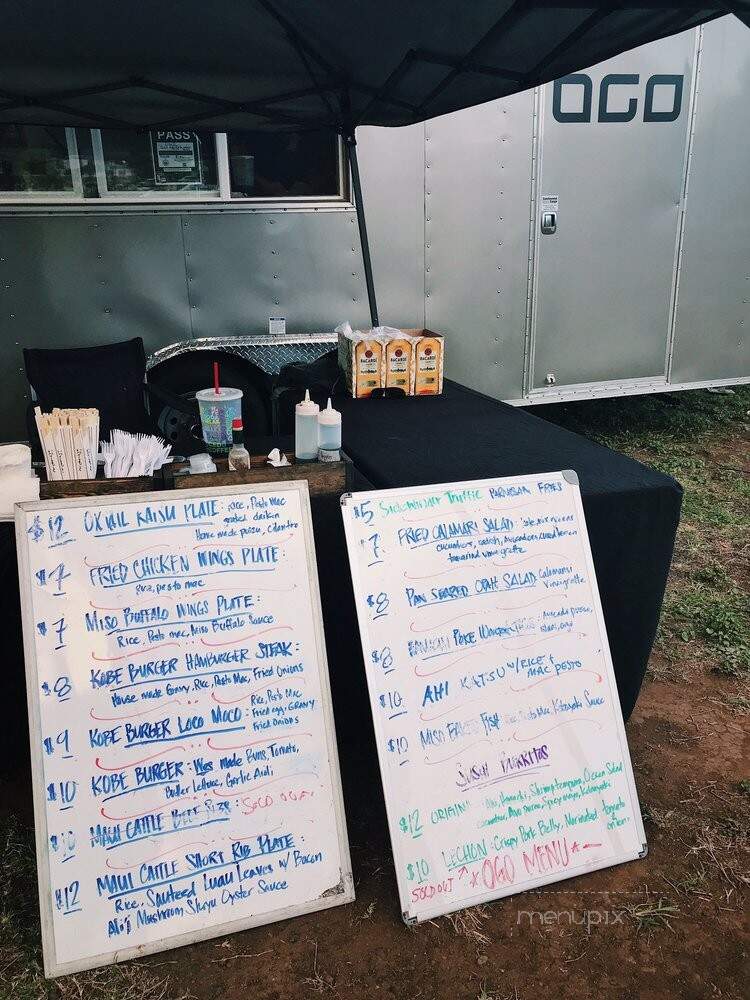 OGO
PASS
BACARDI BACARDI BACARDI
$12 OXTAIL KATSU PLATE: rice, Pesto Mac
grated daikon
Home made ponzu, cilantro
$7 FRIED CHICKEN WINGS PLATE:
Rice, pesto mac
$7 MISO BUFFALO WINGS PLATE:
Rice, Pesto mac, Miso Buffalo Sauce
$8 KOBE BURGER HAMBURGER STEAK:
House made Gravy, Rice, Pesto Mac, Fried Onions
$9 KOBE BURGER LOCO MOCO: Rice, Pesto Mac
Fried egg, GRAVY
Fried Onions
$10 KOBE BURGER: made Buns, Tomato,
Butter Lettuce, Garlic Aioli
$10 MAUI CATTLE BEEF SOLD OUT
$12 MAUI CATTLE SHORT RIB PLATE:
Rice, Sauteed Luau Leaves w/ Bacon
Ali'i Mushroom Shoyu Oyster Sauce
$5 Truffle PARMESAN FRIES
$7 FRIED CALAMARI SALAD
cucumbers, radish,
tamarind vinaigrette
$8 PAN SEARED OPAH SALAD Calamansi
Vinaigrette
$8 POKE Avocado
$10 AHI KATSU W/ RICE +
MAC PESTO
$10 MISO FISH Rice, Pesto Mac, Sauce
SUSHI BURRITOS
$12 ORIGINAL Shrimp tempura, Ocean Salad
cucumber, spicy mayo,
$10 LECHON: Crispy Pork Belly, Marinated tomato
+ onion
SOLD OUT *OGO MENU*
menupix